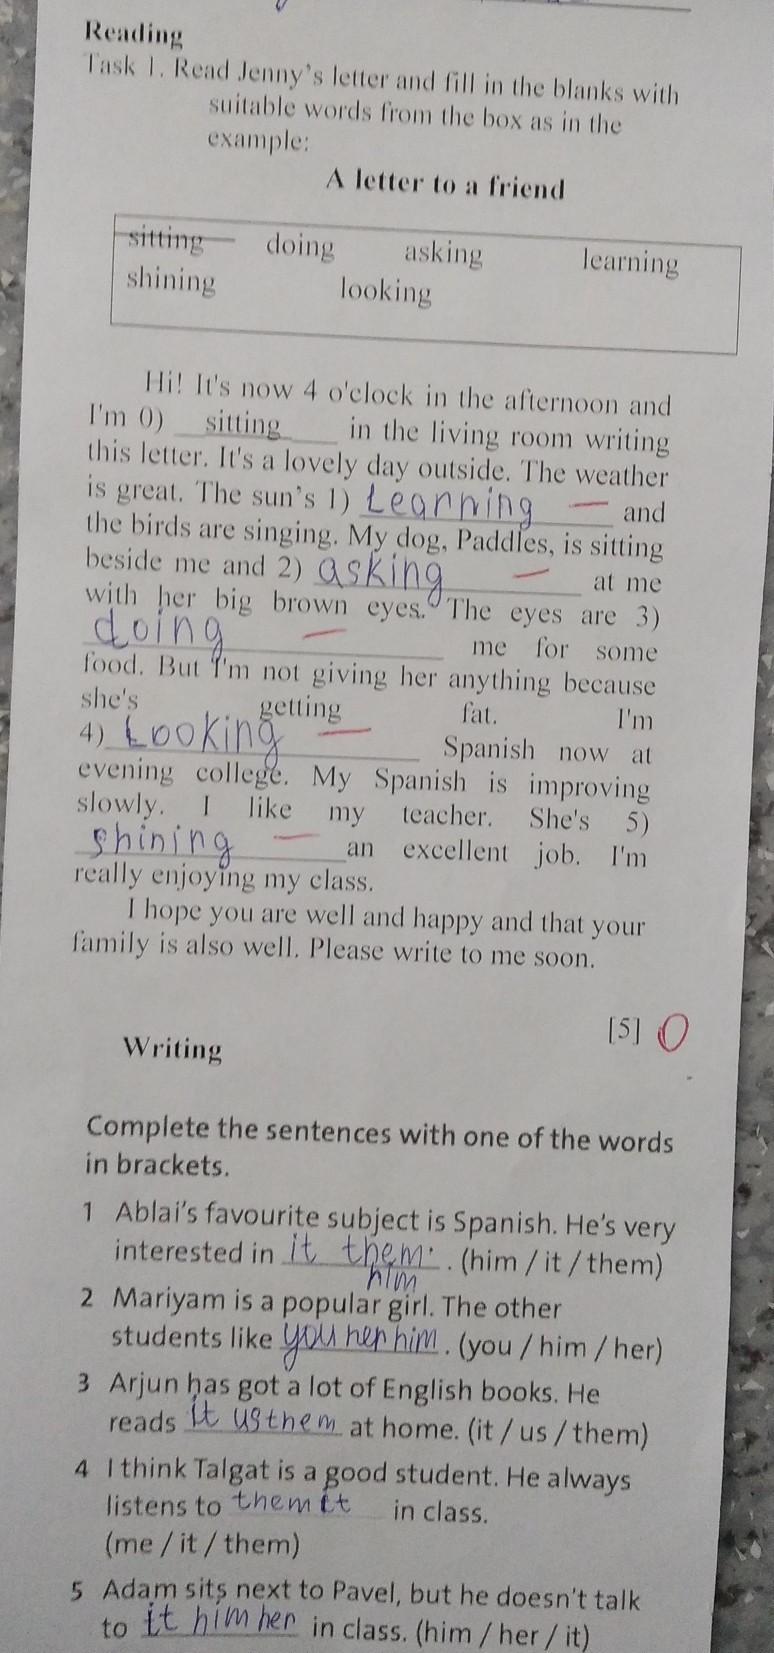 Reading
Task 1. Read Jenny's letter and fill in the blanks with
suitable words from the box as in the
example:
A letter to a friend
sitting doing asking learning
shining looking
Hi! It's now 4 o'clock in the afternoon and
I'm 0) sitting in the living room writing
this letter. It's a lovely day outside. The weather
is great. The sun's 1) Learning and
the birds are singing. My dog, Paddles, is sitting
beside me and 2) asking at me
with her big brown eyes. The eyes are 3)
doing me for some
food. But I'm not giving her anything because
she's getting fat. I'm
4) Looking Spanish now at
evening college. My Spanish is improving
slowly. I like my teacher. She's 5)
shining an excellent job. I'm
really enjoying my class.
I hope you are well and happy and that your
family is also well. Please write to me soon.
[5] 0
Writing
Complete the sentences with one of the words
in brackets.
1 Ablai's favourite subject is Spanish. He's very
interested in it them. . (him / it / them)
him
2 Mariyam is a popular girl. The other
students like you her him . (you / him / her)
3 Arjun has got a lot of English books. He
reads it us them at home. (it / us / them)
4 I think Talgat is a good student. He always
listens to them it in class.
(me / it / them)
5 Adam sits next to Pavel, but he doesn't talk
to it him her in class. (him / her / it)